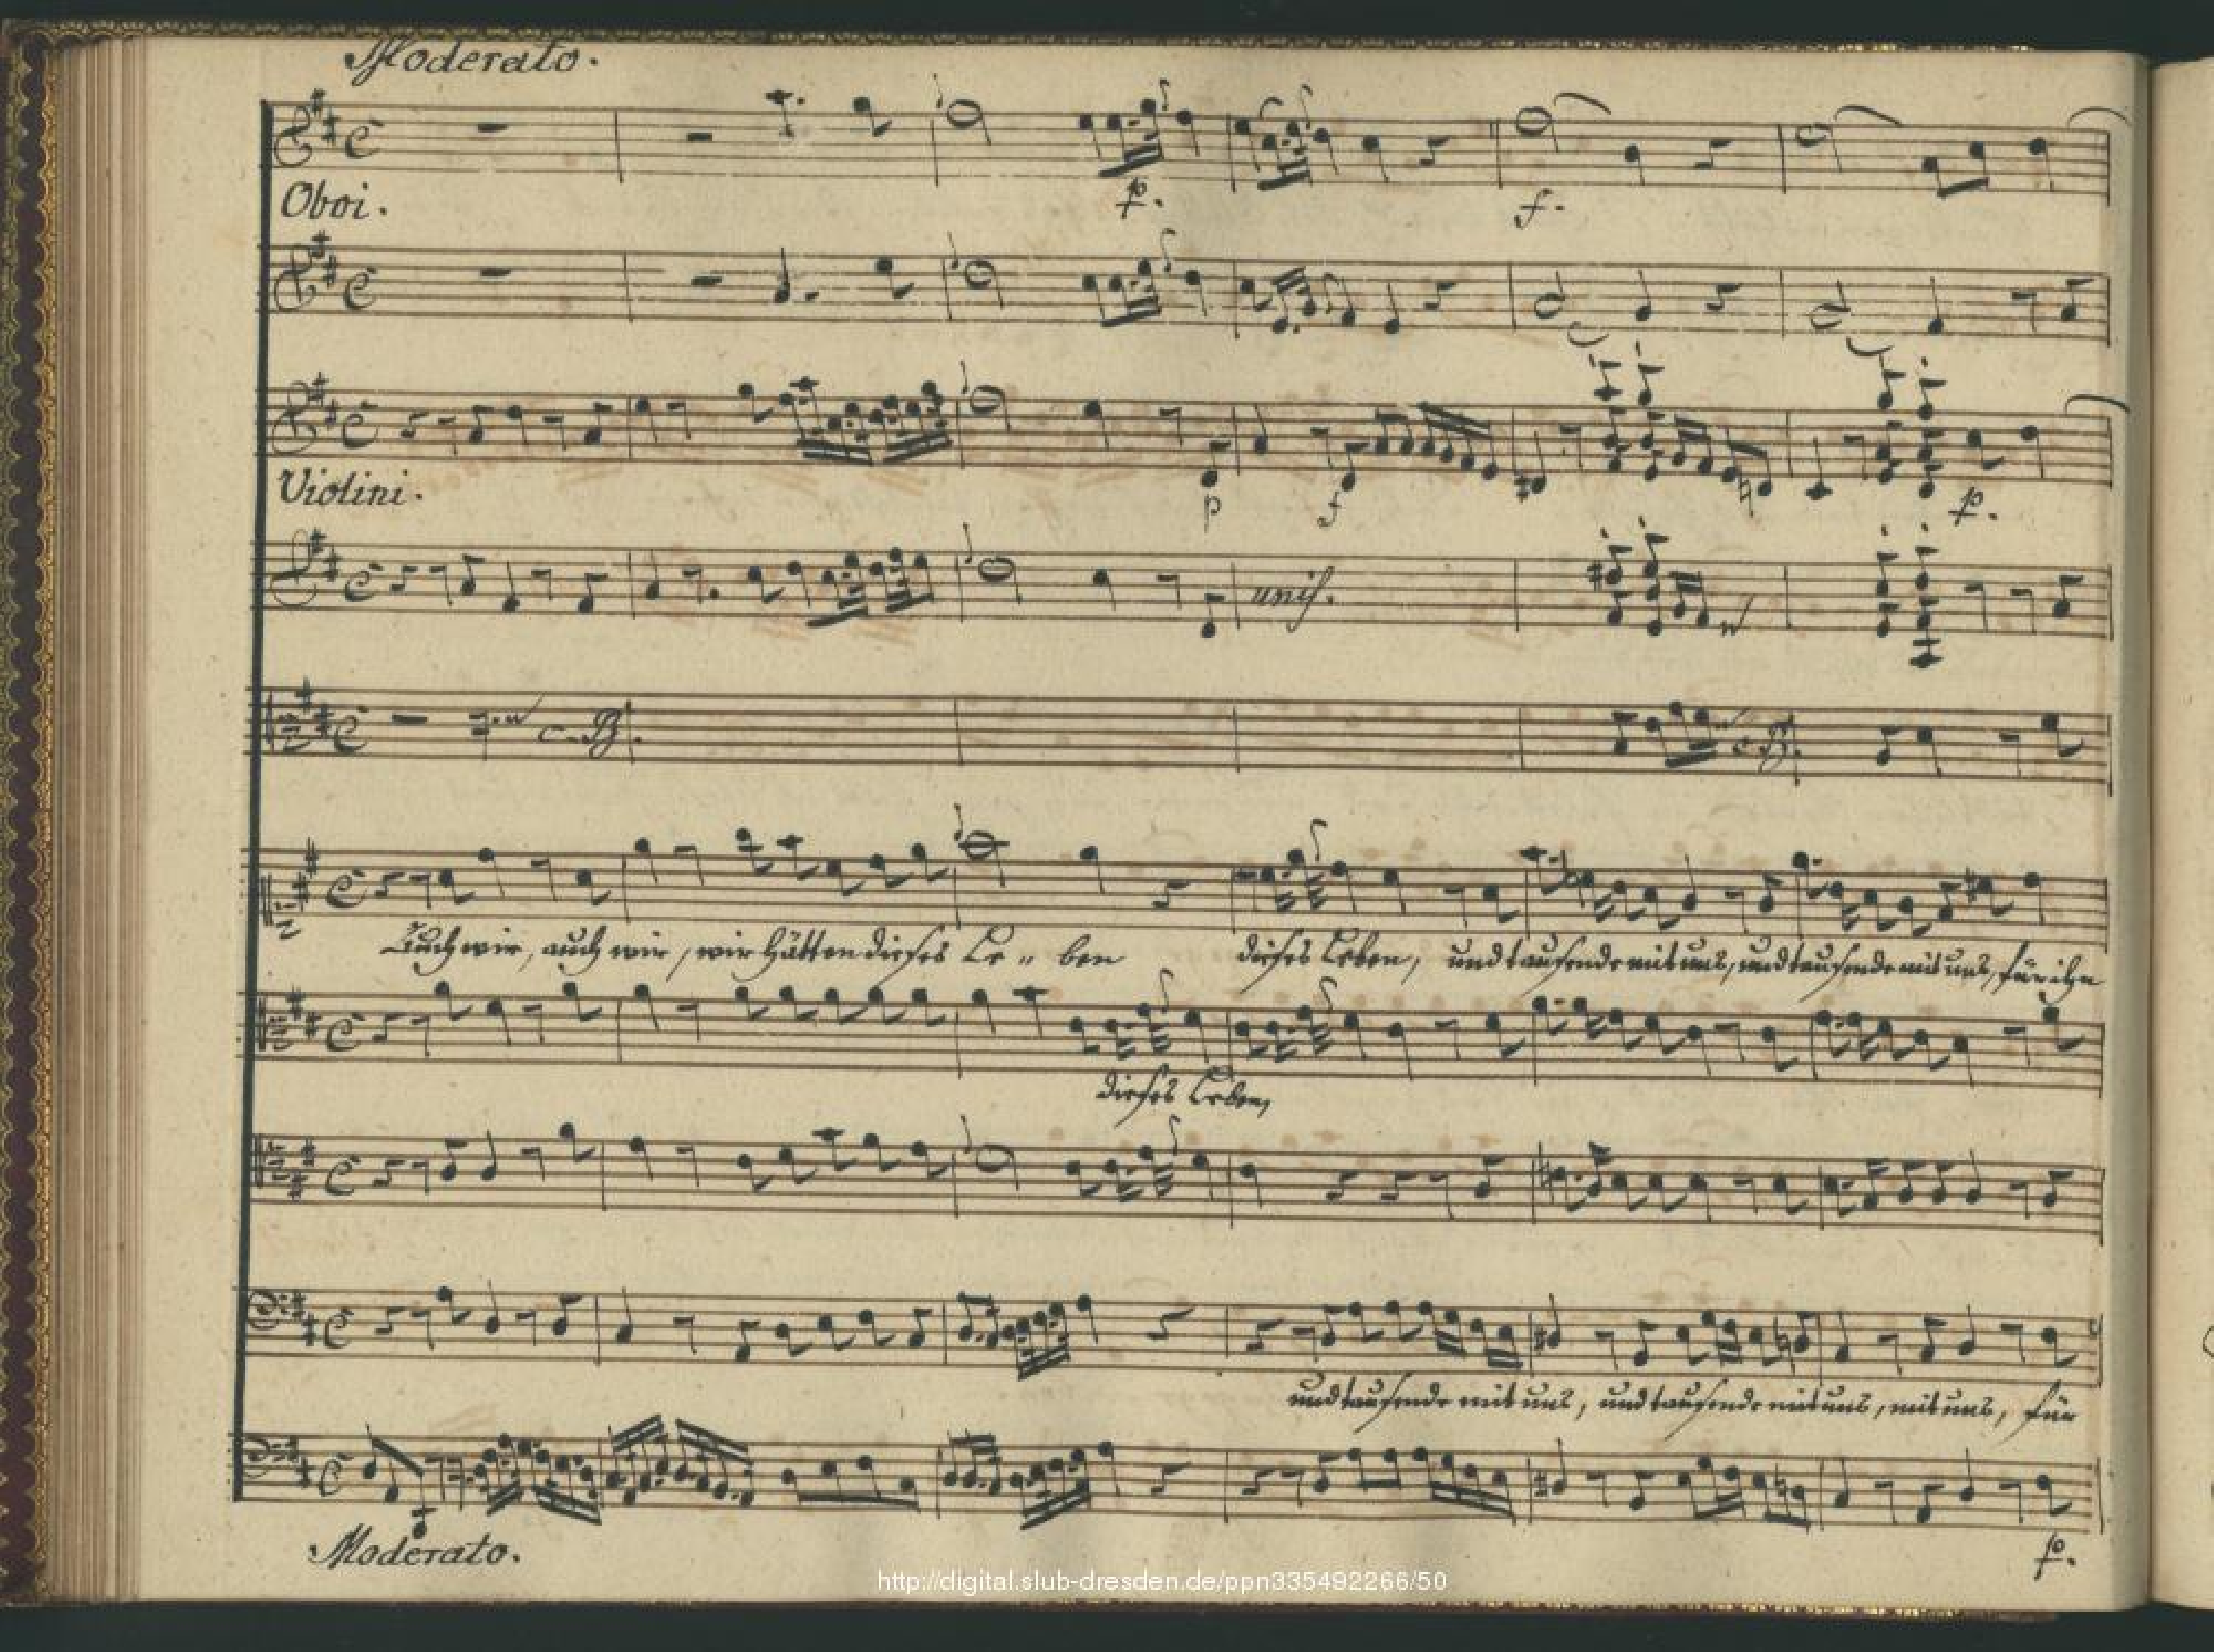 Moderato.
Oboi.
p.
f.
Violini.
p
f
p.
unis.
c. B.
c. B.
Auch wir, auch wir, wir hätten dieses Le " ben dieses Leben, und tausende mit uns, und tausende mit uns, für ihn
dieses Leben,
und tausende mit uns, und tausende mit uns, mit uns, für
Moderato.
p.
http://digital.slub-dresden.de/ppn335492266/50